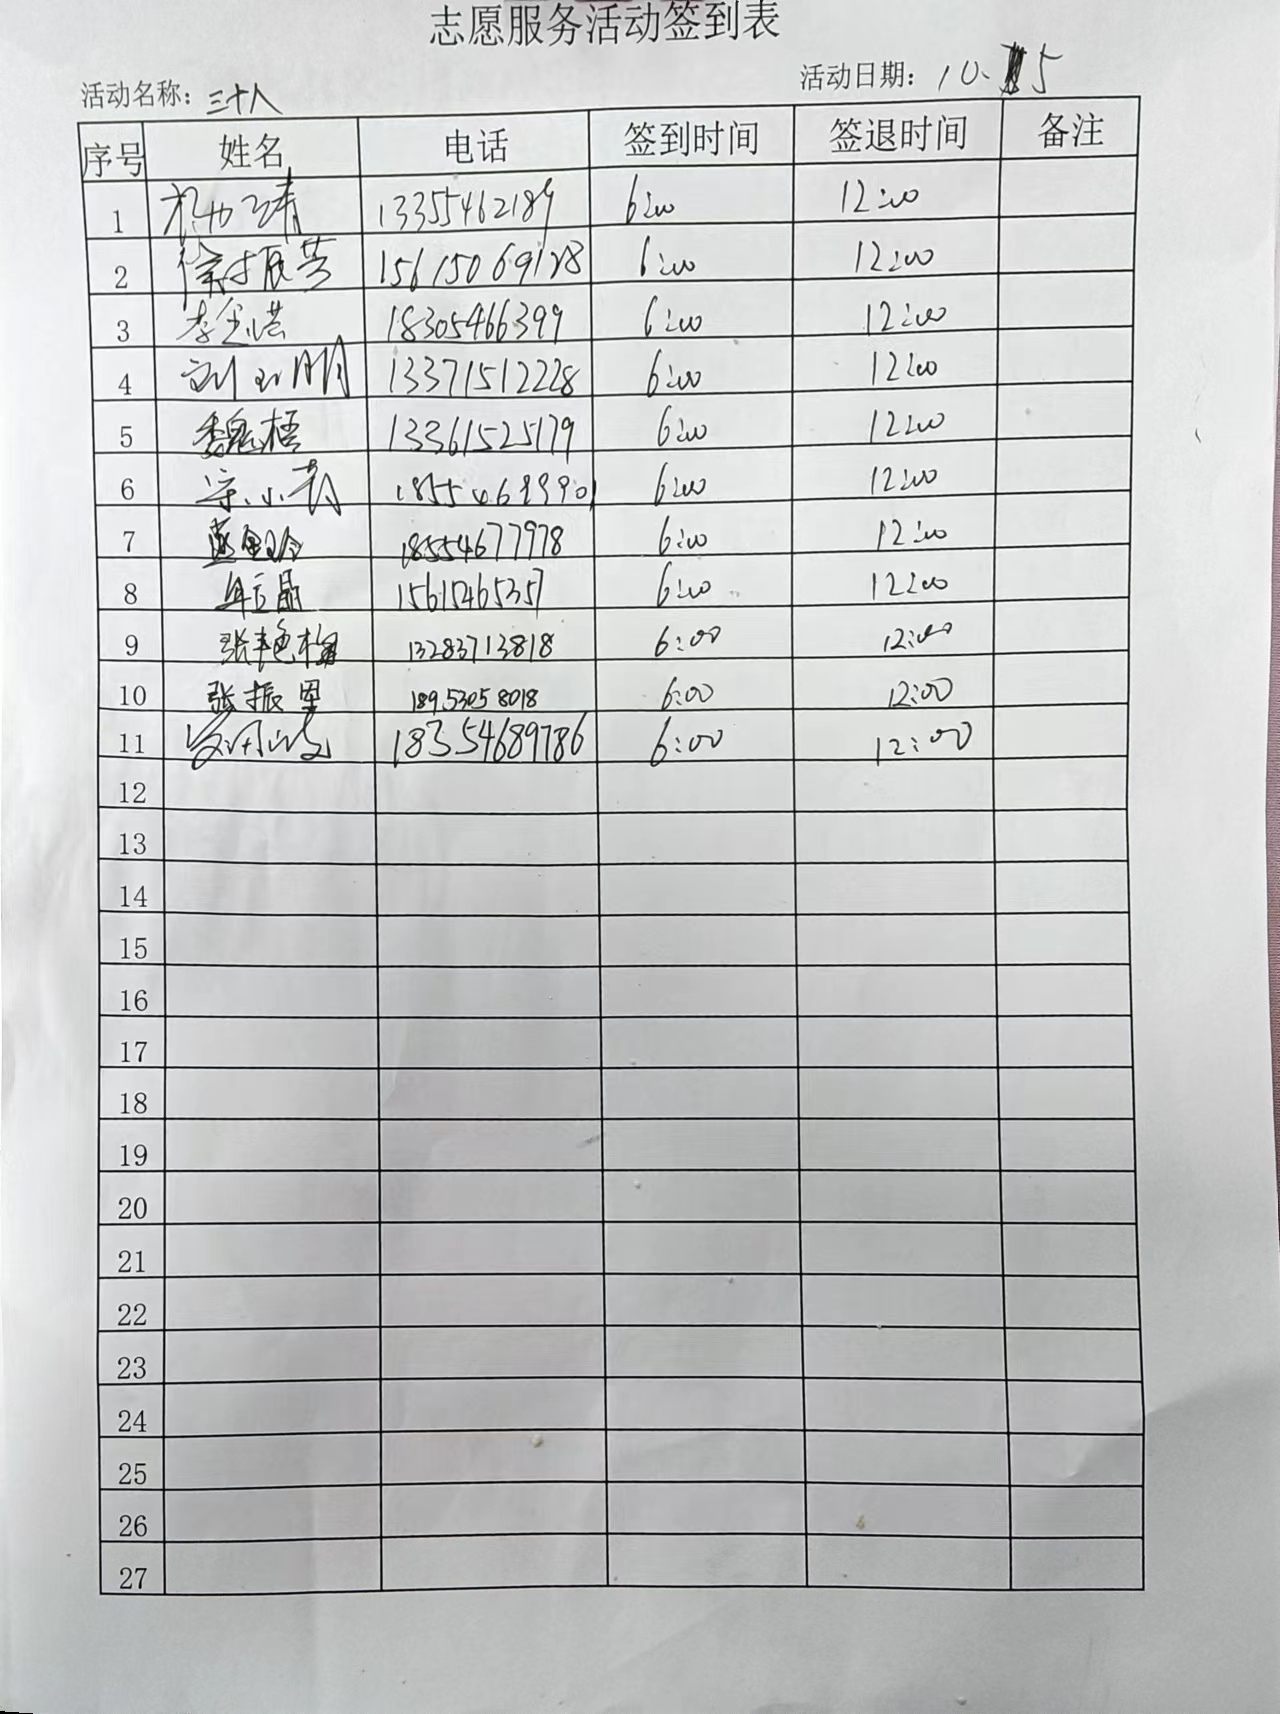 志愿服务活动签到表
活动名称：三十人 活动日期：10.15
序号 姓名 电话 签到时间 签退时间 备注
1 13355462189 6:00 12:00
2 徐振芸 15615069128 6:00 12:00
3 李金洪 18305466399 6:00 12:00
4 刘玉明 13371512228 6:00 12:00
5 魏梧 13361525179 6:00 12:00
6 宋小芳 6:00 12:00
7 18554677978 6:00 12:00
8 年立晶 15615465357 6:00 12:00
9 张艳梅 13283713818 6:00 12:00
10 张振思 18953058018 6:00 12:00
11 18354689786 6:00 12:00
12
13
14
15
16
17
18
19
20
21
22
23
24
25
26
27